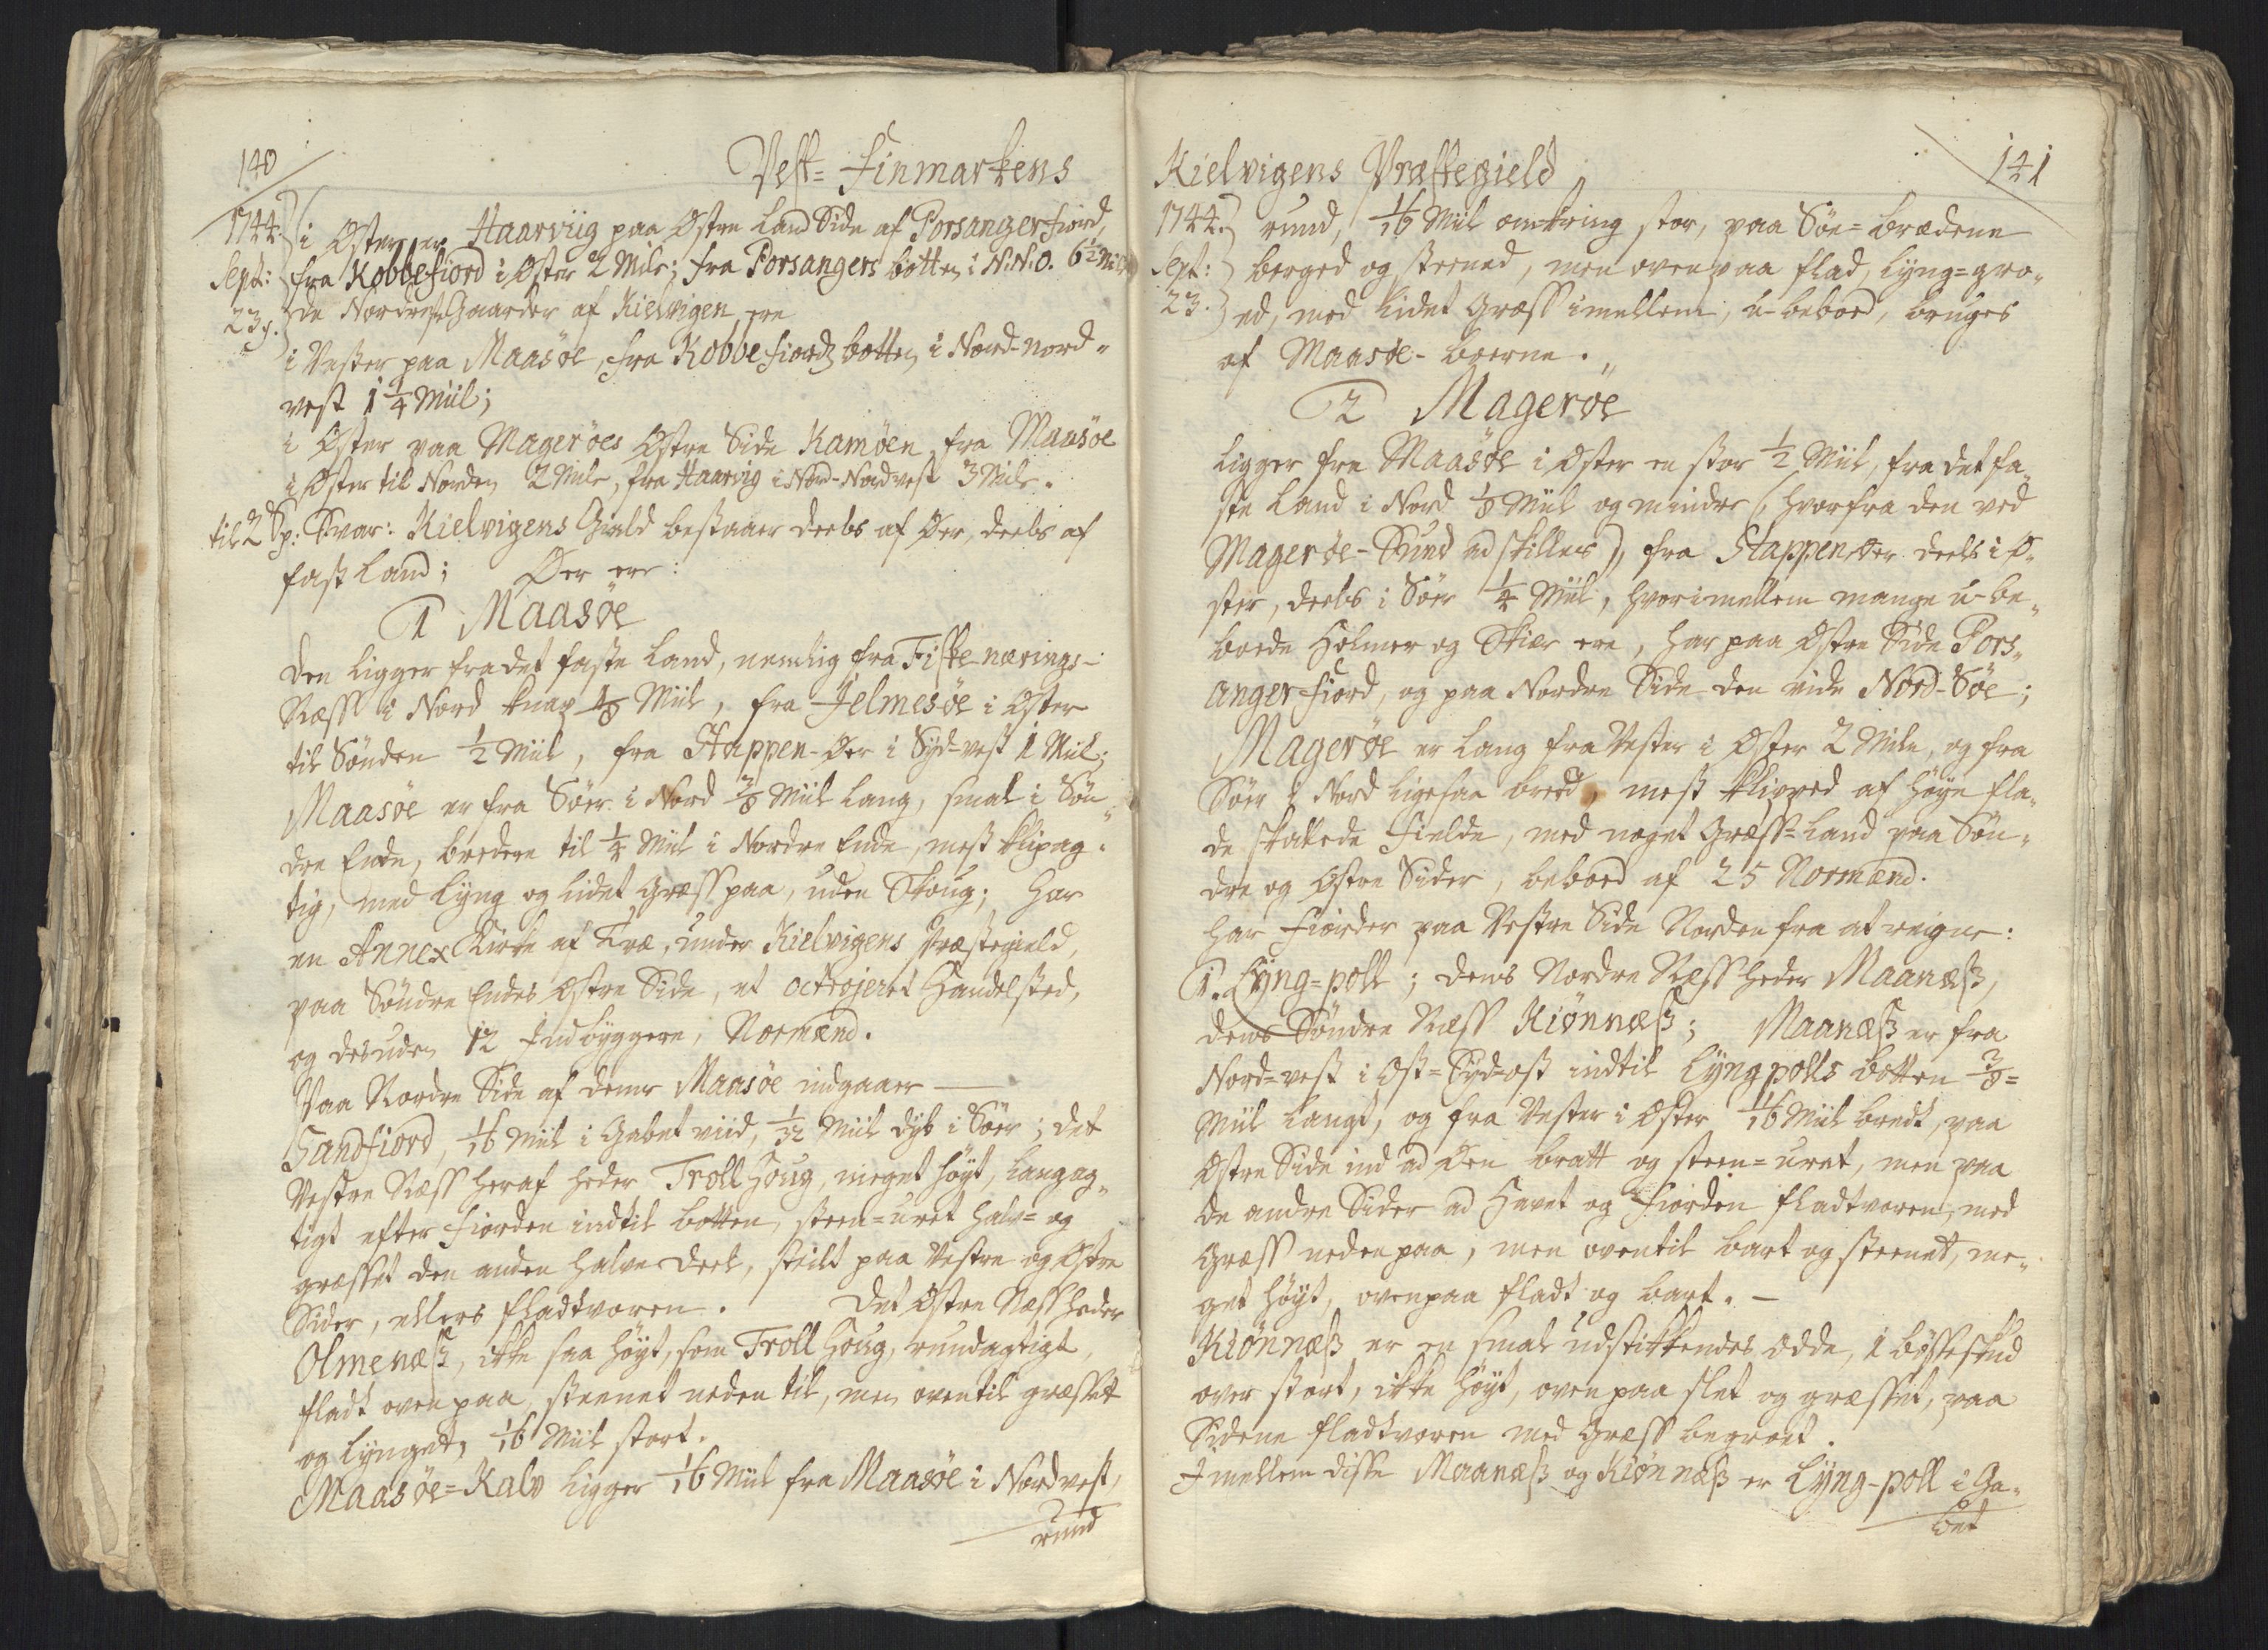 140
Vest-Finmarkens
1744.
Sept:
23.
i Øster er Haarviig paa Østre Land Side af Porsangerfiord,
fra Kobbefiord i Øster 2 Mile; fra Porsangers botten i N.N.O. 6½ Mile
de Nordreste Gaarder af Kielvigen ere
i Vester paa Maasöe, fra Kobbefiords botten i Nord-nord-
vest 1¼ Miil;
i Øster paa Mageröes Østre Side Kamöen, fra Maasöe
i Øster til Norden 2 Mile, fra Haarvig i Nord-Nordvest 3 Mile.
til 2 Sp: Svar: Kielvigens Gield bestaaer deels af Öer, deels af
fast Land; Öer ere:
1 Maasöe
den ligger fra det faste Land, nemlig fra Fiske-nærings-
Næss i Nord knap ⅛ Miil, fra Jelmesöe i Øster
til Sönden ½ Miil, fra Stappen-Öer i Syd-vest 1 Miil;
Maasöe er fra Söer i Nord ⅜ Miil lang, smal i Sön-
dre Ende, bredere til ¼ Miil i Nordre Ende, mest klipag-
tig, med Lyng og lidet Græss paa, uden Skoug; har
en Annex Kirke af Træ, under Kielvigens Præstegield,
paa Söndre Endes Østre Side, et octrojeret Handelsted,
og desuden 12 Indbyggere, Normænd.
Paa Nordre Side af denne Maasöe indgaaer
Sandfiord, 1/16 Miil i Gabet viid, 1/32 Miil dyb i Söer; det
Vestre Næss heraf heder Troll Houg, meget höyt, langag-
tigt efter Fiorden indtil botten, steen-uret halv- og
græsset den anden halve Deel, steilt paa Vestre og Østre
Sider, ellers fladtvoren. Det Østre Næss heder
Olmenæss, ikke saa höyt, som Troll Houg, rundagtigt,
fladt oven paa, steenet neden til, men oventil græsset
og lynget, 1/16 Miil stort.
Maasöe-Kalv ligger 1/16 Miil fra Maasöe i Nordvest,
rund
Kielvigens Præstegield
141
1744.
Sept:
23.
rund, 1/16 Miil omkring stor, paa Söe-brædene
berged og steened, men oven paa flad, lyng-gro-
ed, med lidet Græss imellem, u-beboed, bruges
af Maasöe-boerne.
2 Mageröe
ligger fra Maasöe i Øster en stor ½ Miil, fra det fa-
ste Land i Nord ⅛ Miil og mindre (hvorfra den ved
Mageröe-Sund adskilles), fra Stappenöer deels i Ö-
ster, deels i Söer ¼ Miil, hvorimellem mange u-be-
boede Holmer og Skier ere, har paa Østre Side Pors-
angerfiord, og paa Nordre Side den vide Nord-Söe;
Mageröe er lang fra Vester i Øster 2 Mile, og fra
Söer i Nord ligesaa bred, mest klipped af höye fla-
de skallede Fielde, med noget Græss-Land paa Sön-
dre og Østre Sider, beboed af 25 Normænd.
har Fiorder paa Vestre Side Norden fra at reigne:
1. Lyng-poll; dens Nordre Næss heder Maanæss,
dens Söndre Næss Kiönnæss; Maanæss er fra
Nord-vest i Öst-Syd-ost indtil Lyngpolls botten ⅜-
Miil langt, og fra Vester i Øster 1/16 Miil bredt, paa
Østre Side ind ad Öen bratt og steen-uret, men paa
de andre Sider ad Havet og Fiorden fladtvoren, med
Græss neden paa, men oventil bart og steenet, me-
get höyt, oven paa fladt og bart.
Kiönnæss er en smal udstikkendes odde, 1 bösseskud
over stort, ikke höyt, oven paa slet og græsset, paa
Sidene fladtvoren med Græss begroet.
Imellem disse Maanæss og Kiönnæss er Lyng-poll i Ga-
bet